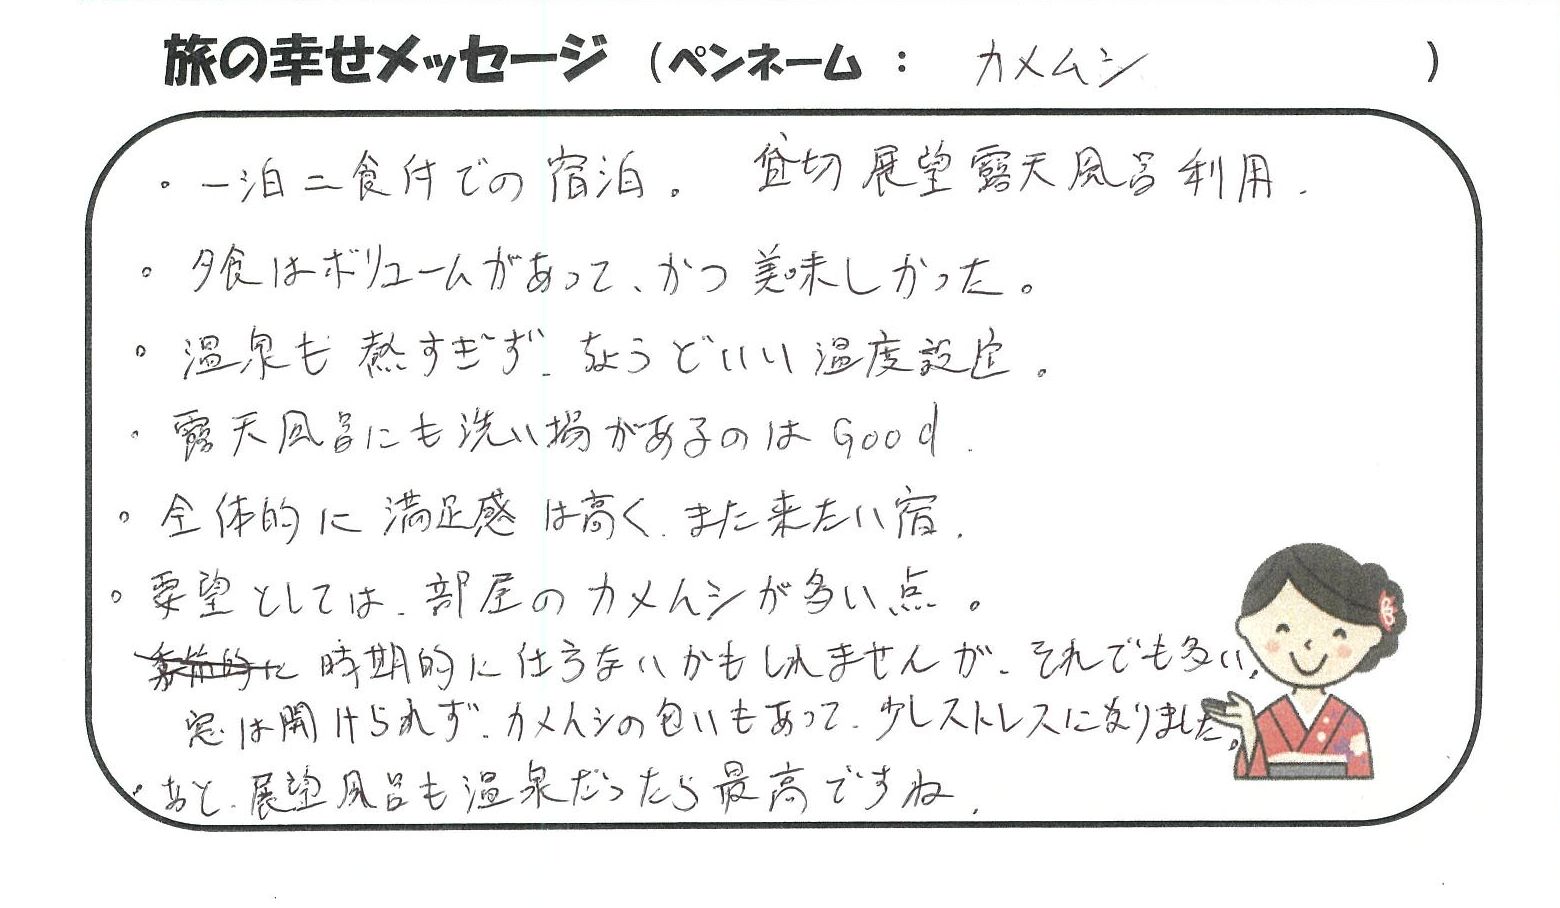 旅の幸せメッセージ （ペンネーム ： カメムシ ）
・一泊二食付での宿泊。 貸切展望露天風呂利用.
。夕食はボリュームがあって、かつ美味しかった。
。温泉も熱すぎず、ちょうどいい温度設定。
・露天風呂にも洗い場があるのはGood.
。全体的に満足感は高く、また来たい宿.
。要望としては、部屋のカメムシが多い点。
時期的に仕方ないかもしれませんが、それでも多い。
窓は開けられず、カメムシの匂いもあって、少しストレスになりました。
・あと、展望風呂も温泉だったら最高ですね.